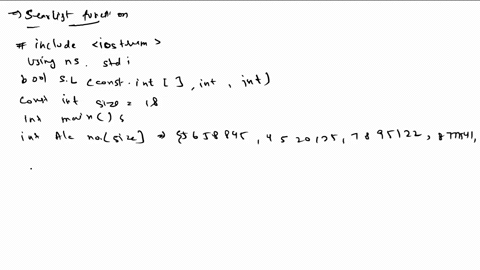 ⇒ Searlist function
# include <iostream>
Using ns. std;
bool S.L (const.int [ ], int, int)
Const int size = 18
Int main() {
int Alc no.[size] ⇒ {5658845, 4520125, 7895122, 8777541,